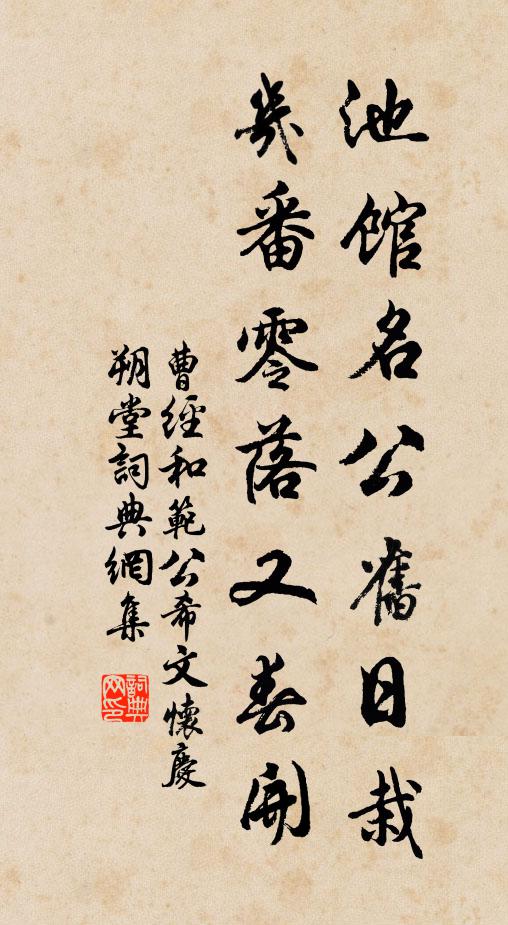 池馆名公舊日栽
幾番零落又春開
曹經和範公希文懷慶
朔堂詞典網集
詞典网印